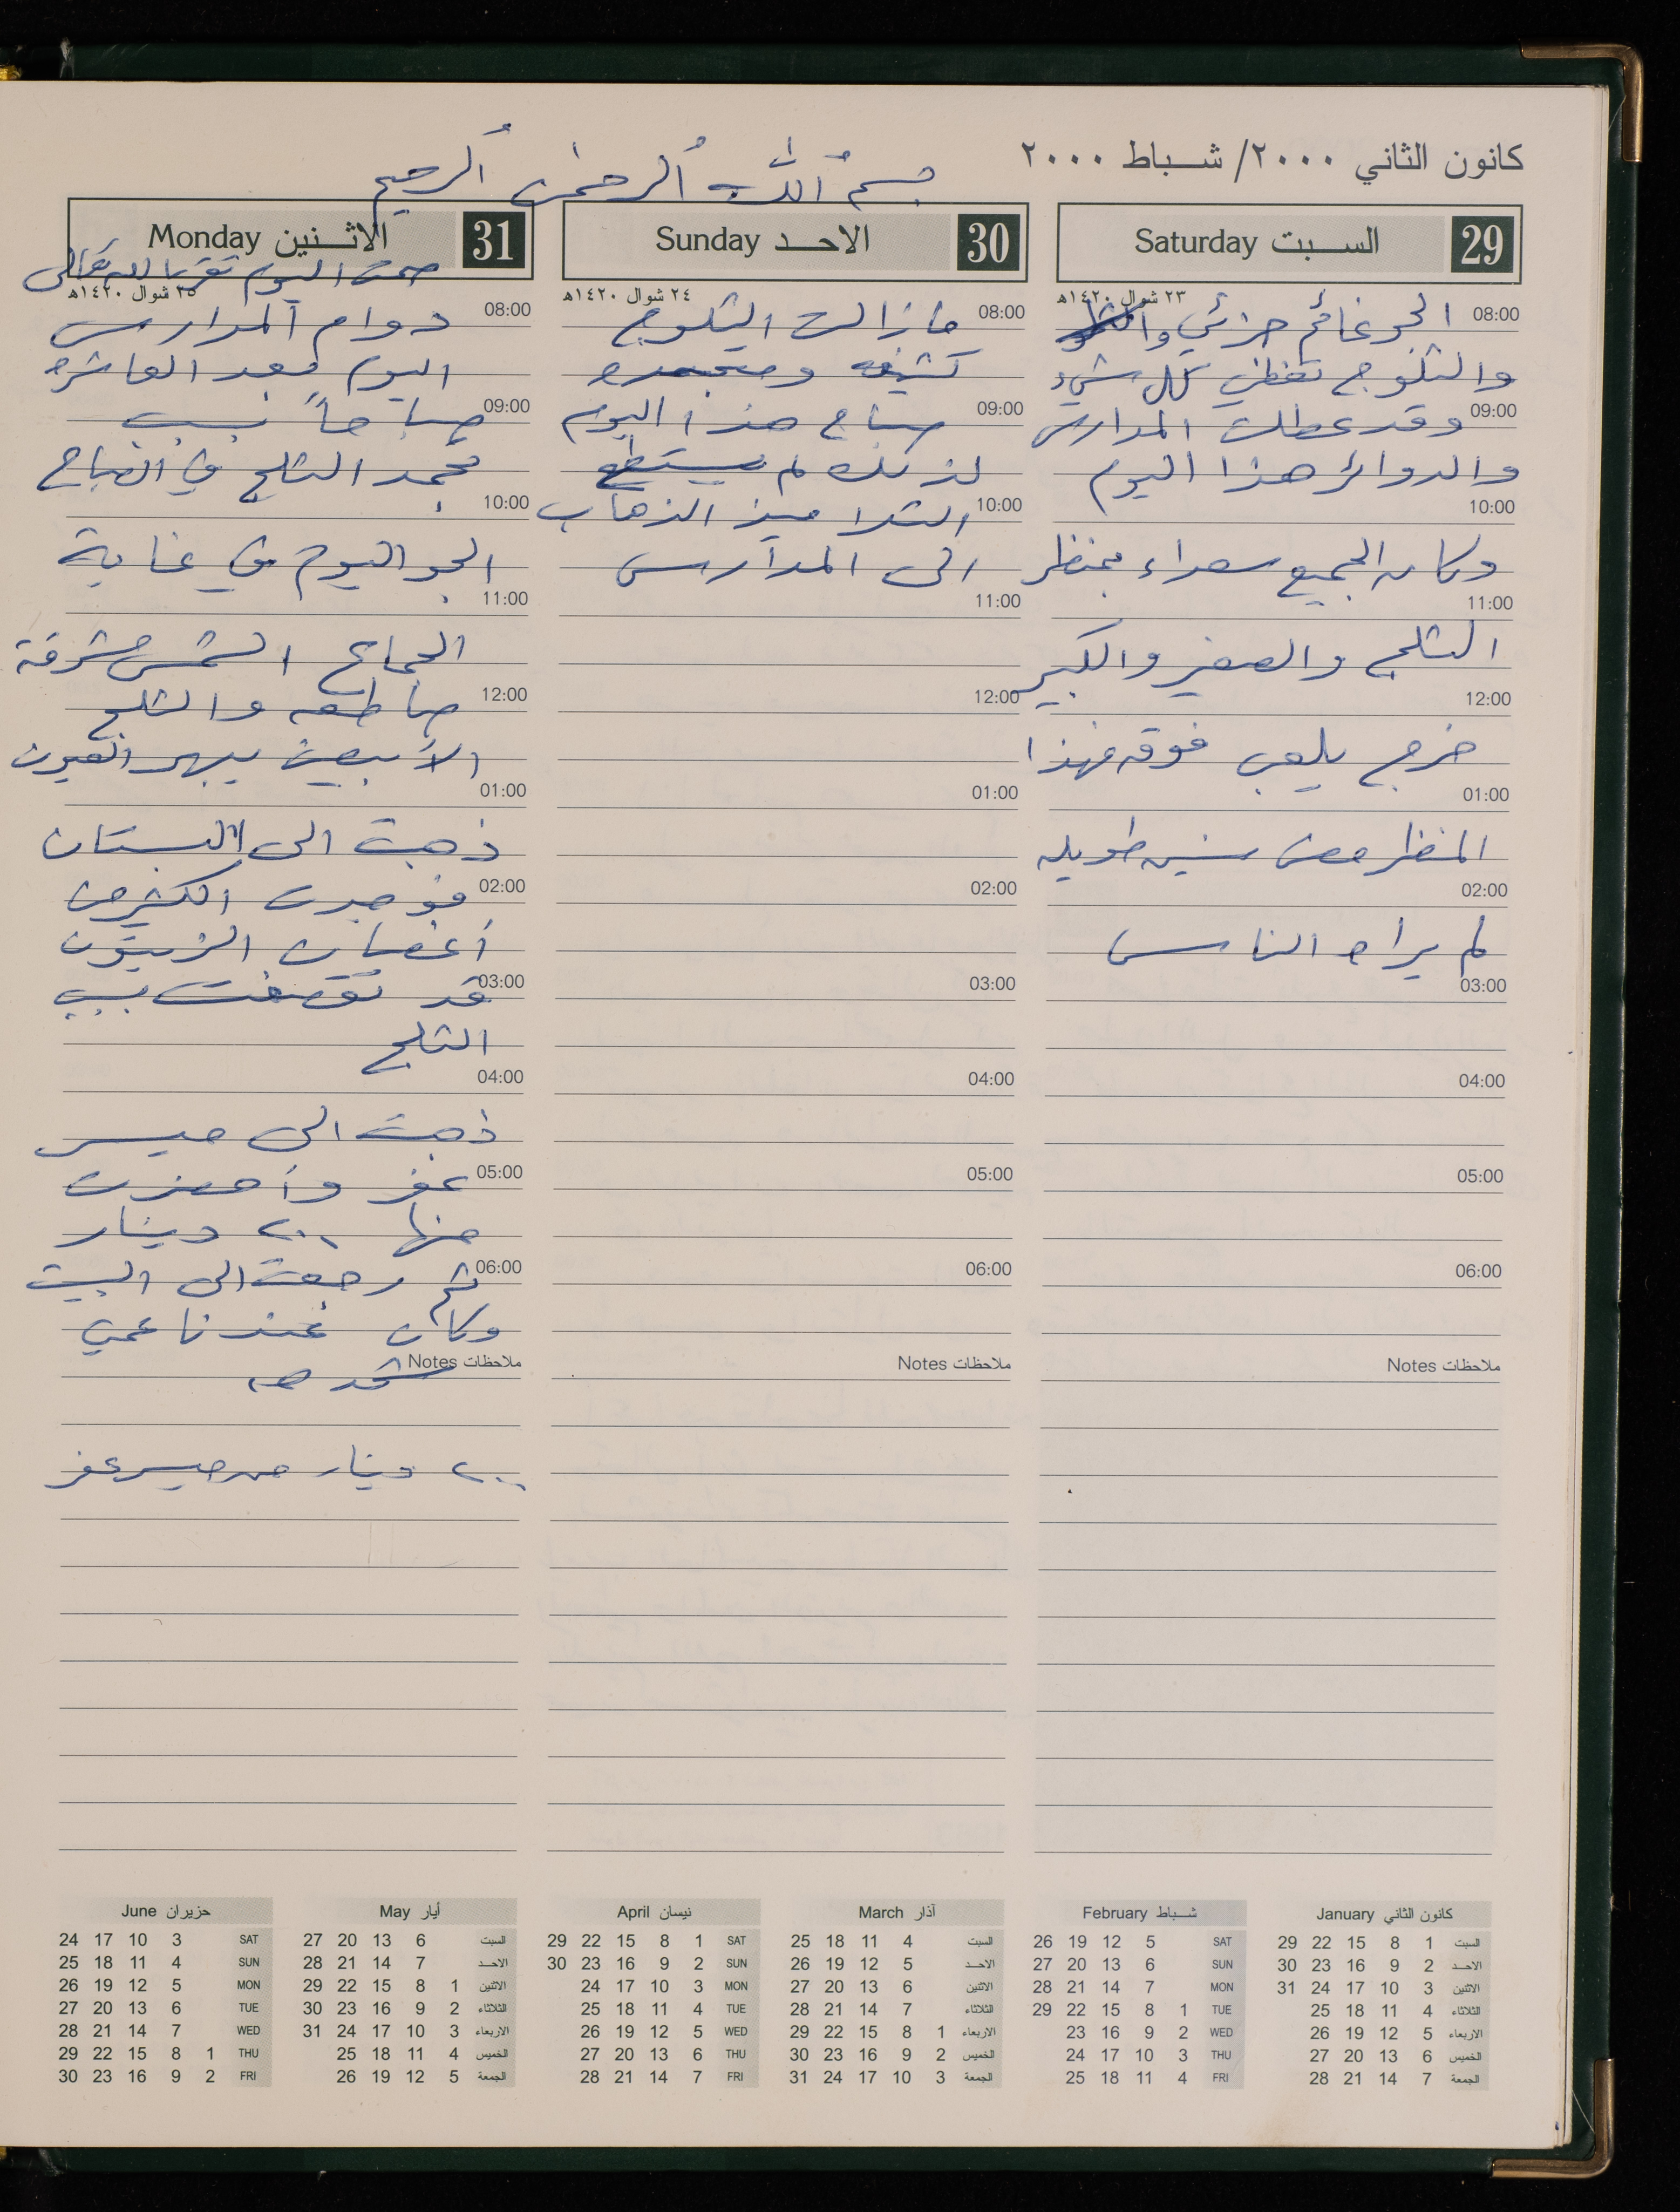 كانون الثاني ٢٠٠٠/ شباط ٢٠٠٠
بسم الله الرحمن الرحيم
29 السبت Saturday
٢٣ شوال ١٤٢٠هـ
08:00 الجو غائم جزئي و
والثلوج تغطي كل شيء
09:00 وقد عطلت المدارس
والدوائر هذا اليوم
10:00
وكان الجميع سعداء بمنظر
11:00
الثلج والصغير والكبير
12:00
خرج يلعب فوقه فهذا
01:00
المنظر من سنين طويله
02:00
لم يراه الناس
03:00
04:00
05:00
06:00
ملاحظات Notes
30 الاحد Sunday
٢٤ شوال ١٤٢٠هـ
08:00 مازالت الثلوج
كثيفه ومتجمده
09:00 صباح هذا اليوم
لذلك لم يستطع
10:00 التلاميذ الذهاب
الى المدارس
11:00
12:00
01:00
02:00
03:00
04:00
05:00
06:00
ملاحظات Notes
31 الاثنين Monday
صمت اليوم تقربا لله تعالى
٢٥ شوال ١٤٢٠هـ
08:00 دوام المدارس
اليوم بعد العاشره
09:00 صباحاً بسبب
تجمد الثلج في الصباح
10:00
الجو اليوم في غاية
11:00
الشمس مشرقة
12:00 ساطعه والثلج
الأبيض يبهر العيون
01:00
ذهبت الى البستان
02:00 فوجدت الكثير من
أغصان الزيتون
03:00 قد تقصفت بسبب
الثلج
04:00
ذهبت الى ميسر
05:00 عفر وأحضرت
منها ٢٠٠ دينار
06:00 ثم رجعت الى البيت
وكان عندنا عمي
ملاحظات Notes
٢٠٠ دينار من ميسر عفر
كانون الثاني January
السبت 1 8 15 22 29
الاحد 2 9 16 23 30
الاثنين 3 10 17 24 31
الثلاثاء 4 11 18 25
الاربعاء 5 12 19 26
الخميس 6 13 20 27
الجمعة 7 14 21 28
شباط February
SAT 5 12 19 26
SUN 6 13 20 27
MON 7 14 21 28
TUE 1 8 15 22 29
WED 2 9 16 23
THU 3 10 17 24
FRI 4 11 18 25
آذار March
السبت 4 11 18 25
الاحد 5 12 19 26
الاثنين 6 13 20 27
الثلاثاء 7 14 21 28
الاربعاء 1 8 15 22 29
الخميس 2 9 16 23 30
الجمعة 3 10 17 24 31
نيسان April
SAT 1 8 15 22 29
SUN 2 9 16 23 30
MON 3 10 17 24
TUE 4 11 18 25
WED 5 12 19 26
THU 6 13 20 27
FRI 7 14 21 28
أيار May
السبت 6 13 20 27
الاحد 7 14 21 28
الاثنين 1 8 15 22 29
الثلاثاء 2 9 16 23 30
الاربعاء 3 10 17 24 31
الخميس 4 11 18 25
الجمعة 5 12 19 26
حزيران June
SAT 3 10 17 24
SUN 4 11 18 25
MON 5 12 19 26
TUE 6 13 20 27
WED 7 14 21 28
THU 1 8 15 22 29
FRI 2 9 16 23 30